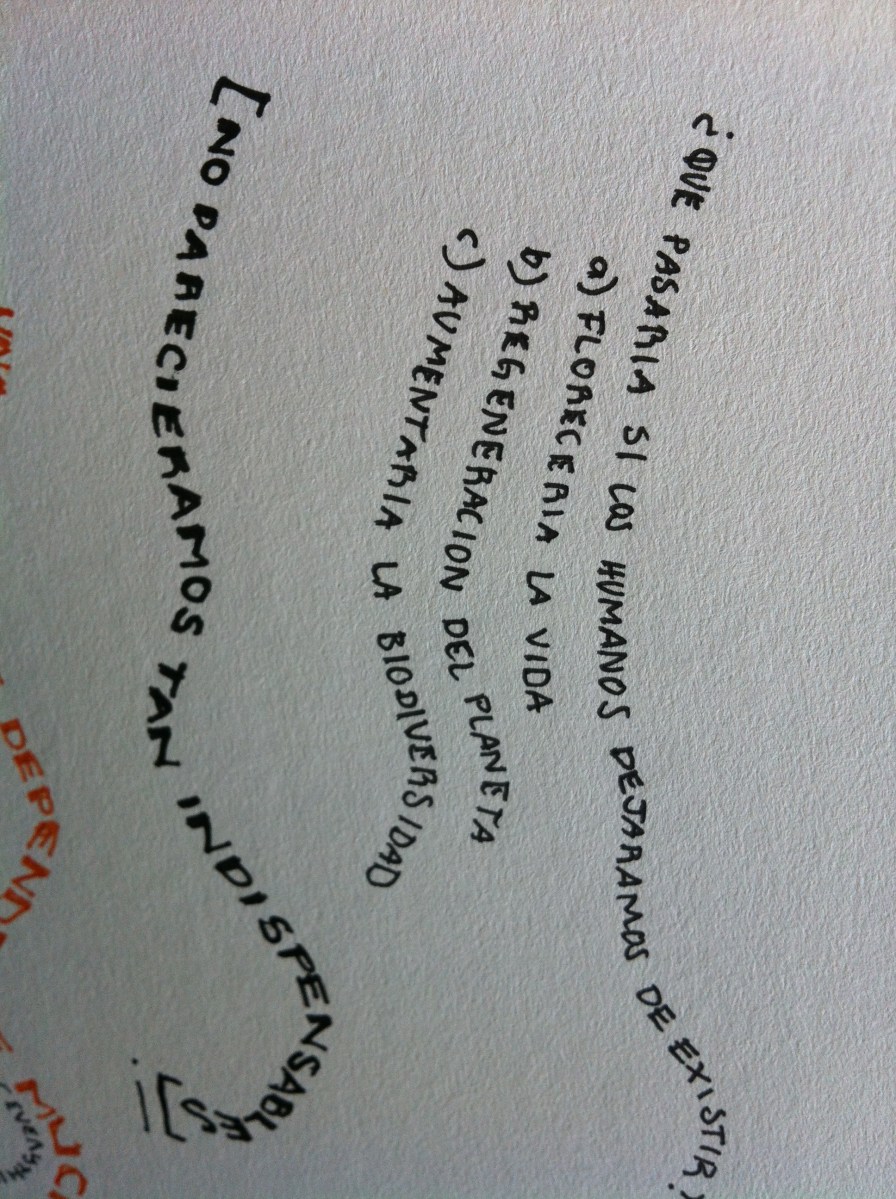 ¿QUE PASARIA SI LOS HUMANOS DEJARAMOS DE EXISTIR?
a) FLORECERIA LA VIDA
b) REGENERACION DEL PLANETA
c) AUMENTARIA LA BIODIVERSIDAD
[NO PARECIERAMOS TAN INDISPENSABLES]
DEPEND
MUC